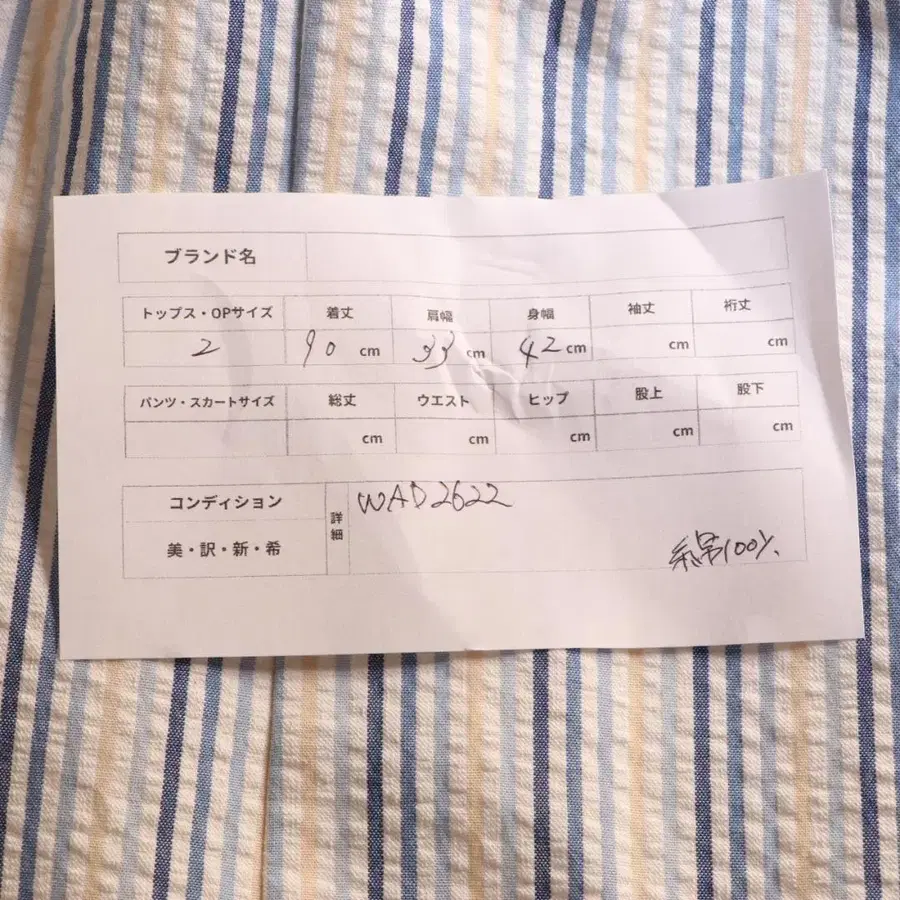 ブランド名
トップス・OPサイズ 着丈 肩幅 身幅 袖丈 裄丈
2 90 cm 33 cm 42 cm cm cm
パンツ・スカートサイズ 総丈 ウエスト ヒップ 股上 股下
cm cm cm cm cm
コンディション 詳細 WAD2622
美・訳・新・希 綿100%